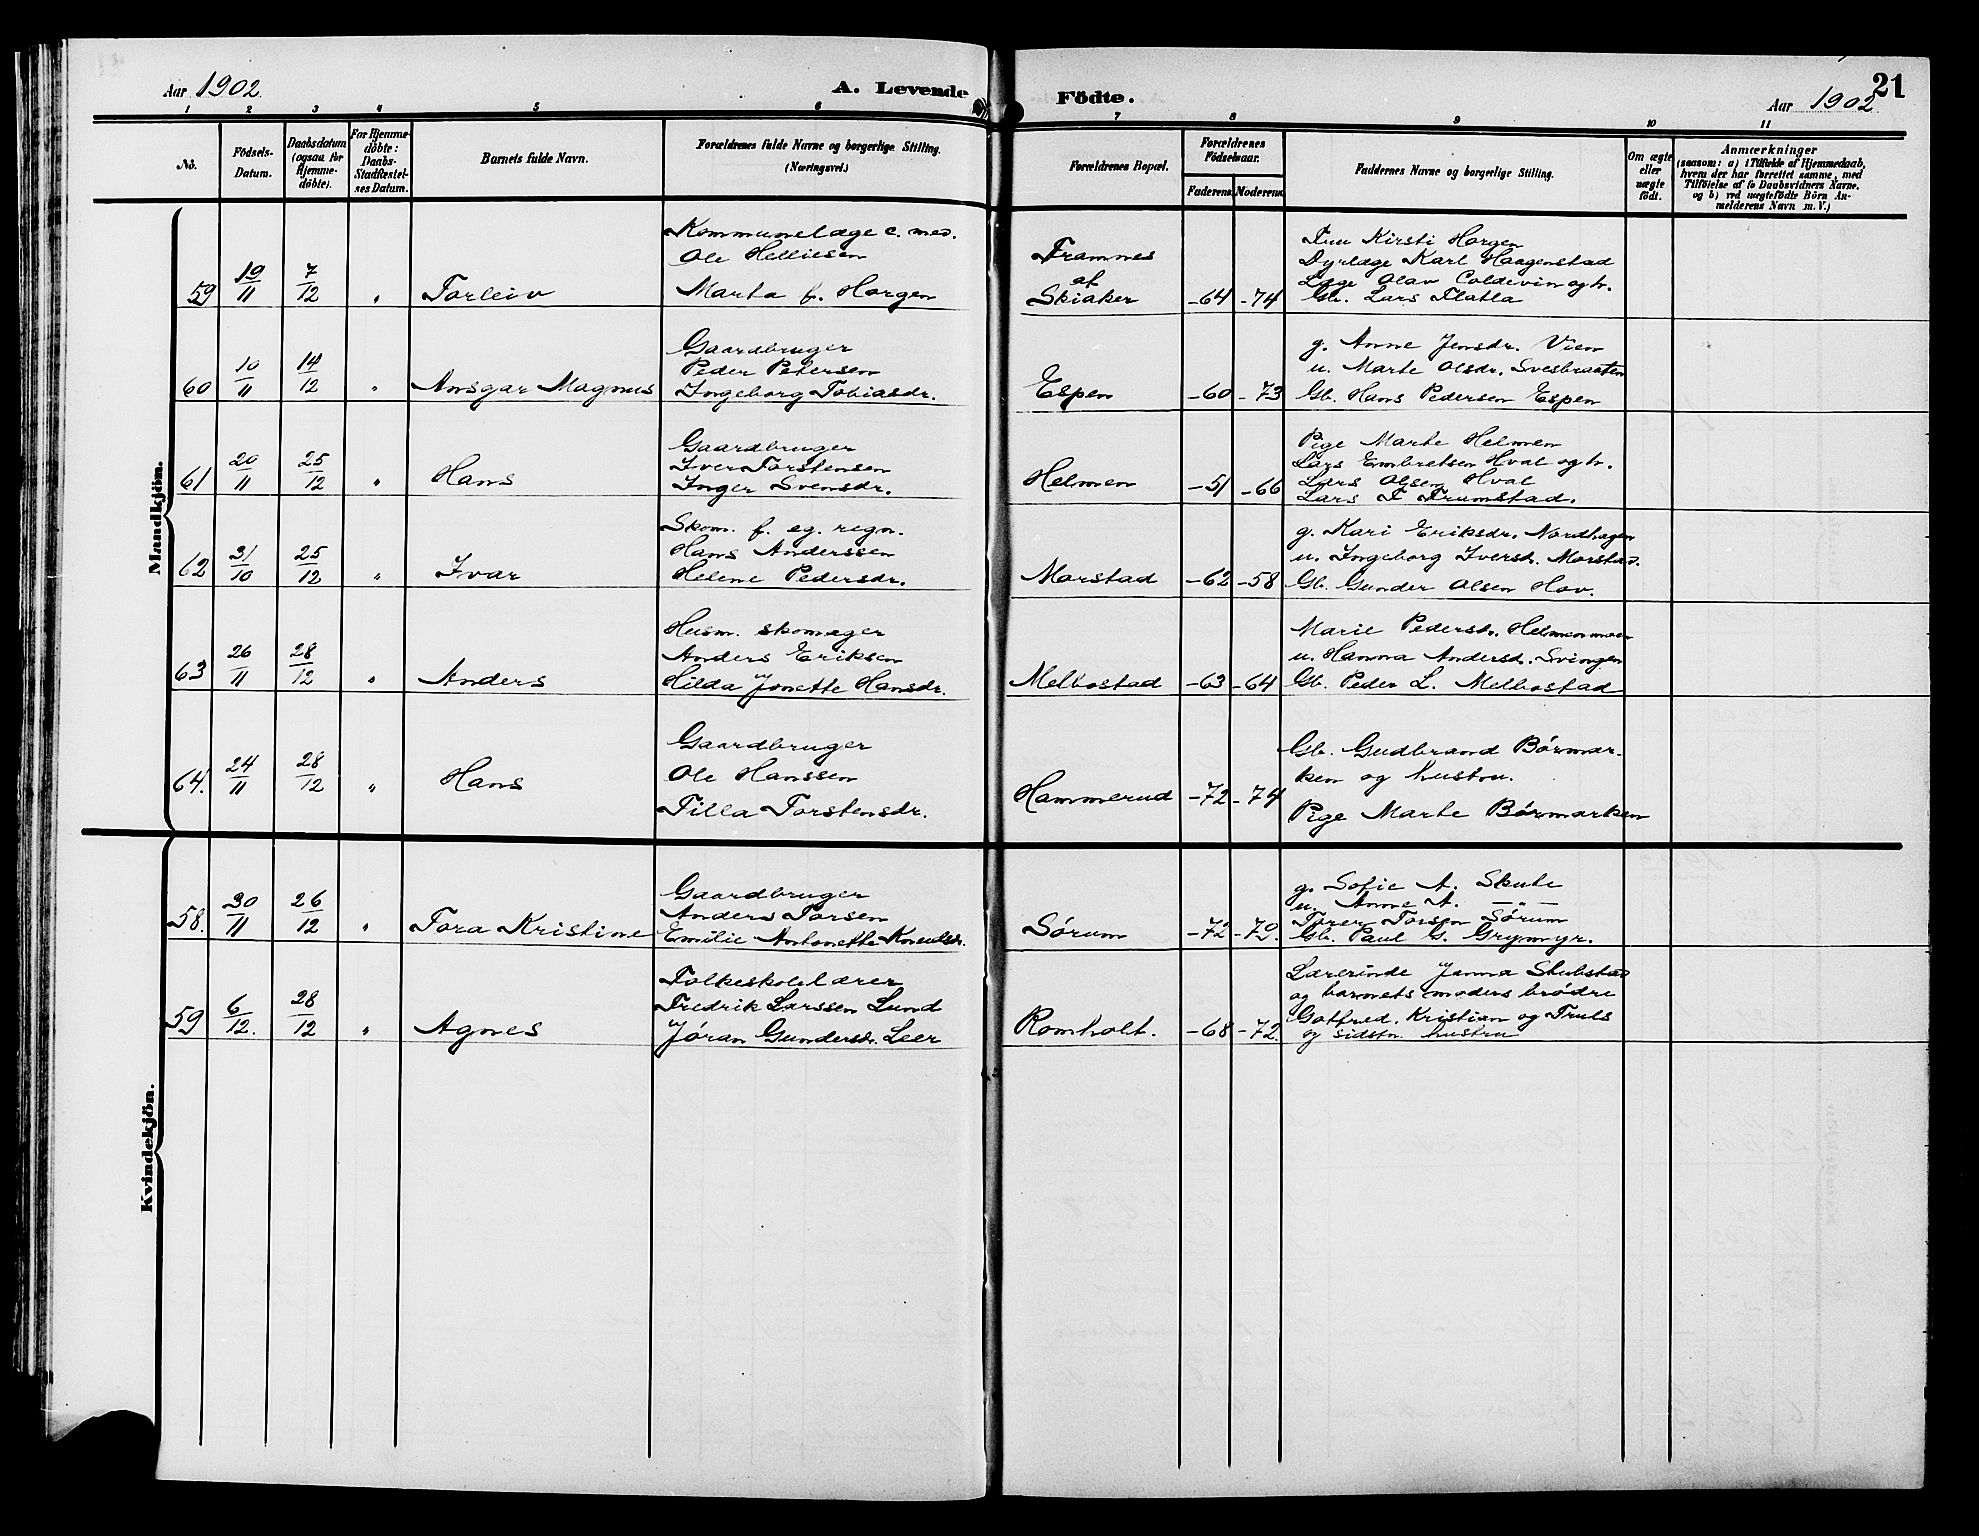 Aar 1902.
A. Levende
Födte.
21
Aar 1902
1 2 3 4 5 6 7 8 9 10 11
No.
Födsels-
Datum.
Daabsdatum
(ogsaa for
Hjemme-
döbte).
For Hjemme-
döbte:
Daabs-
Stadfæstel-
ses Datum.
Barnets fulde Navn.
Forældrenes fulde Navne og borgerlige Stilling.
(Næringsvei.)
Forældrenes Bopæl.
Forældrenes
Födselsaar.
Faderens Moderens
Faddernes Navne og borgerlige Stilling.
Om ægte
eller
uægte
födt.
Anmærkninger
(saasom: a) i Tilfælde af Hjemmedaab,
hvem der har forrettet samme, med
Tilföielse af to Daabsvidners Navne.
og b) ved uægtefödte Börn An-
melderens Navn m. V.)
Mandkjön.
59 19/11 7/12 " Torleiv
Kommunelæge c. med.
Ole Helliesen
Marta f. Horgen
Framnes
af
Skiaker
-64 -74
Fru Kirsti Horgen
Dyrlæge Karl Haagenstad
Læge Olav Coldevin og h.
Gb. Lars Flatla
60 10/11 14/12 " Ansgar Magnus
Gaardbruger
Peder Petersen
Ingeborg Tobiasdr.
Espen
-60 -73
g. Anne Jensdr. Vien
u. Marte Olsdr. Svesbraaten
Gb. Hans Pedersen Espen
61 20/11 25/12 " Hans
Gaardbruger
Iver Torstensen
Inger Svensdr.
Helmen
-51 -66
Pige Marte Helmen
Lars Embretsen Hval og h.
Lars Olsen Hval
Lars T Frumstad.
62 31/10 25/12 " Ivar
Skom. f. eg. regn.
Hans Anderssen
Helene Pedersdr.
Morstad
-62 -58
g. Kari Eriksdr. Nordhagen
u. Ingeborg Iversdr. Morstad.
Gb. Gunder Olsen Hov.
63 26/11 28/12 " Anders
Husm. skomager
Anders Eriksen
Hilda Jonette Hansdr.
Melbostad
-63 -64
Marie Pedersdr. Helmenmoen
u. Hanna Andersd. Svingen
Gb. Peder L. Melbostad
64. 24/11 28/12 " Hans
Gaardbruger
Ole Hanssen
Tilla Torstensdr.
Hammerud
-72 -74
Gb. Gudbrand Börmar-
ken og hustru.
Pige Marte Börmarken
Kvindekjön.
58. 30/11 26/12 " Tora Kristine
Gaardbruger
Anders Torsen
Emilie Antonette Knudsdr.
Sørum
-72 -79.
g. Sofie A. Skute
u. Anne A. — " —
Torer Torsen Sørum
Gb. Paul G. Grymyr.
59 6/12. 28/12 " Agnes
Folkeskolelærer
Fredrik Larssen Lund
Jöran Gundersdr. Leer
Romholt.
-68 -72.
Lærerinde Janna Skubstad
og barnets moders brödre
Gotfred, Kristian og Truls
og sidstn. hustru